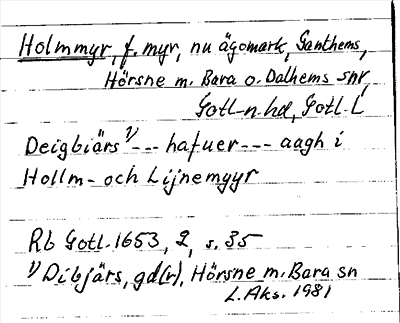 Holmmyr, f. myr, nu ägomark, Ganthems,
Hörsne m. Bara o. Dalhems snr,
Gotl. n. hd, Gotl. L
Deigbiärs 1) --- hafuer --- aagh i
Hollm- och Lijnemyyr
Rb Gotl. 1653, 2, s. 35
1) Dibjärs, gd(r), Hörsne m. Bara sn
L. Aks. 1981